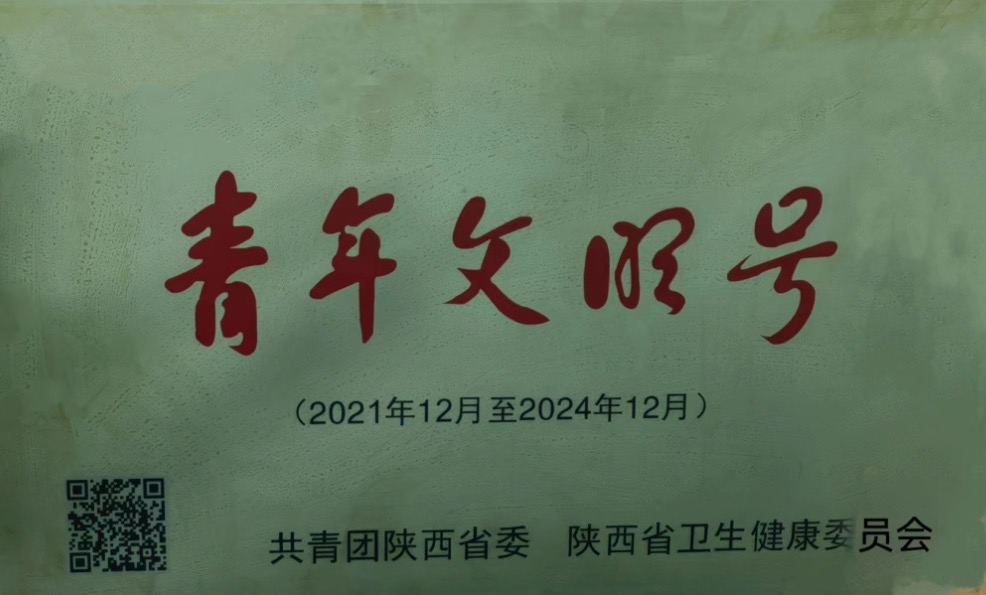 青年文明号
（2021年12月至2024年12月）
共青团陕西省委 陕西省卫生健康委员会